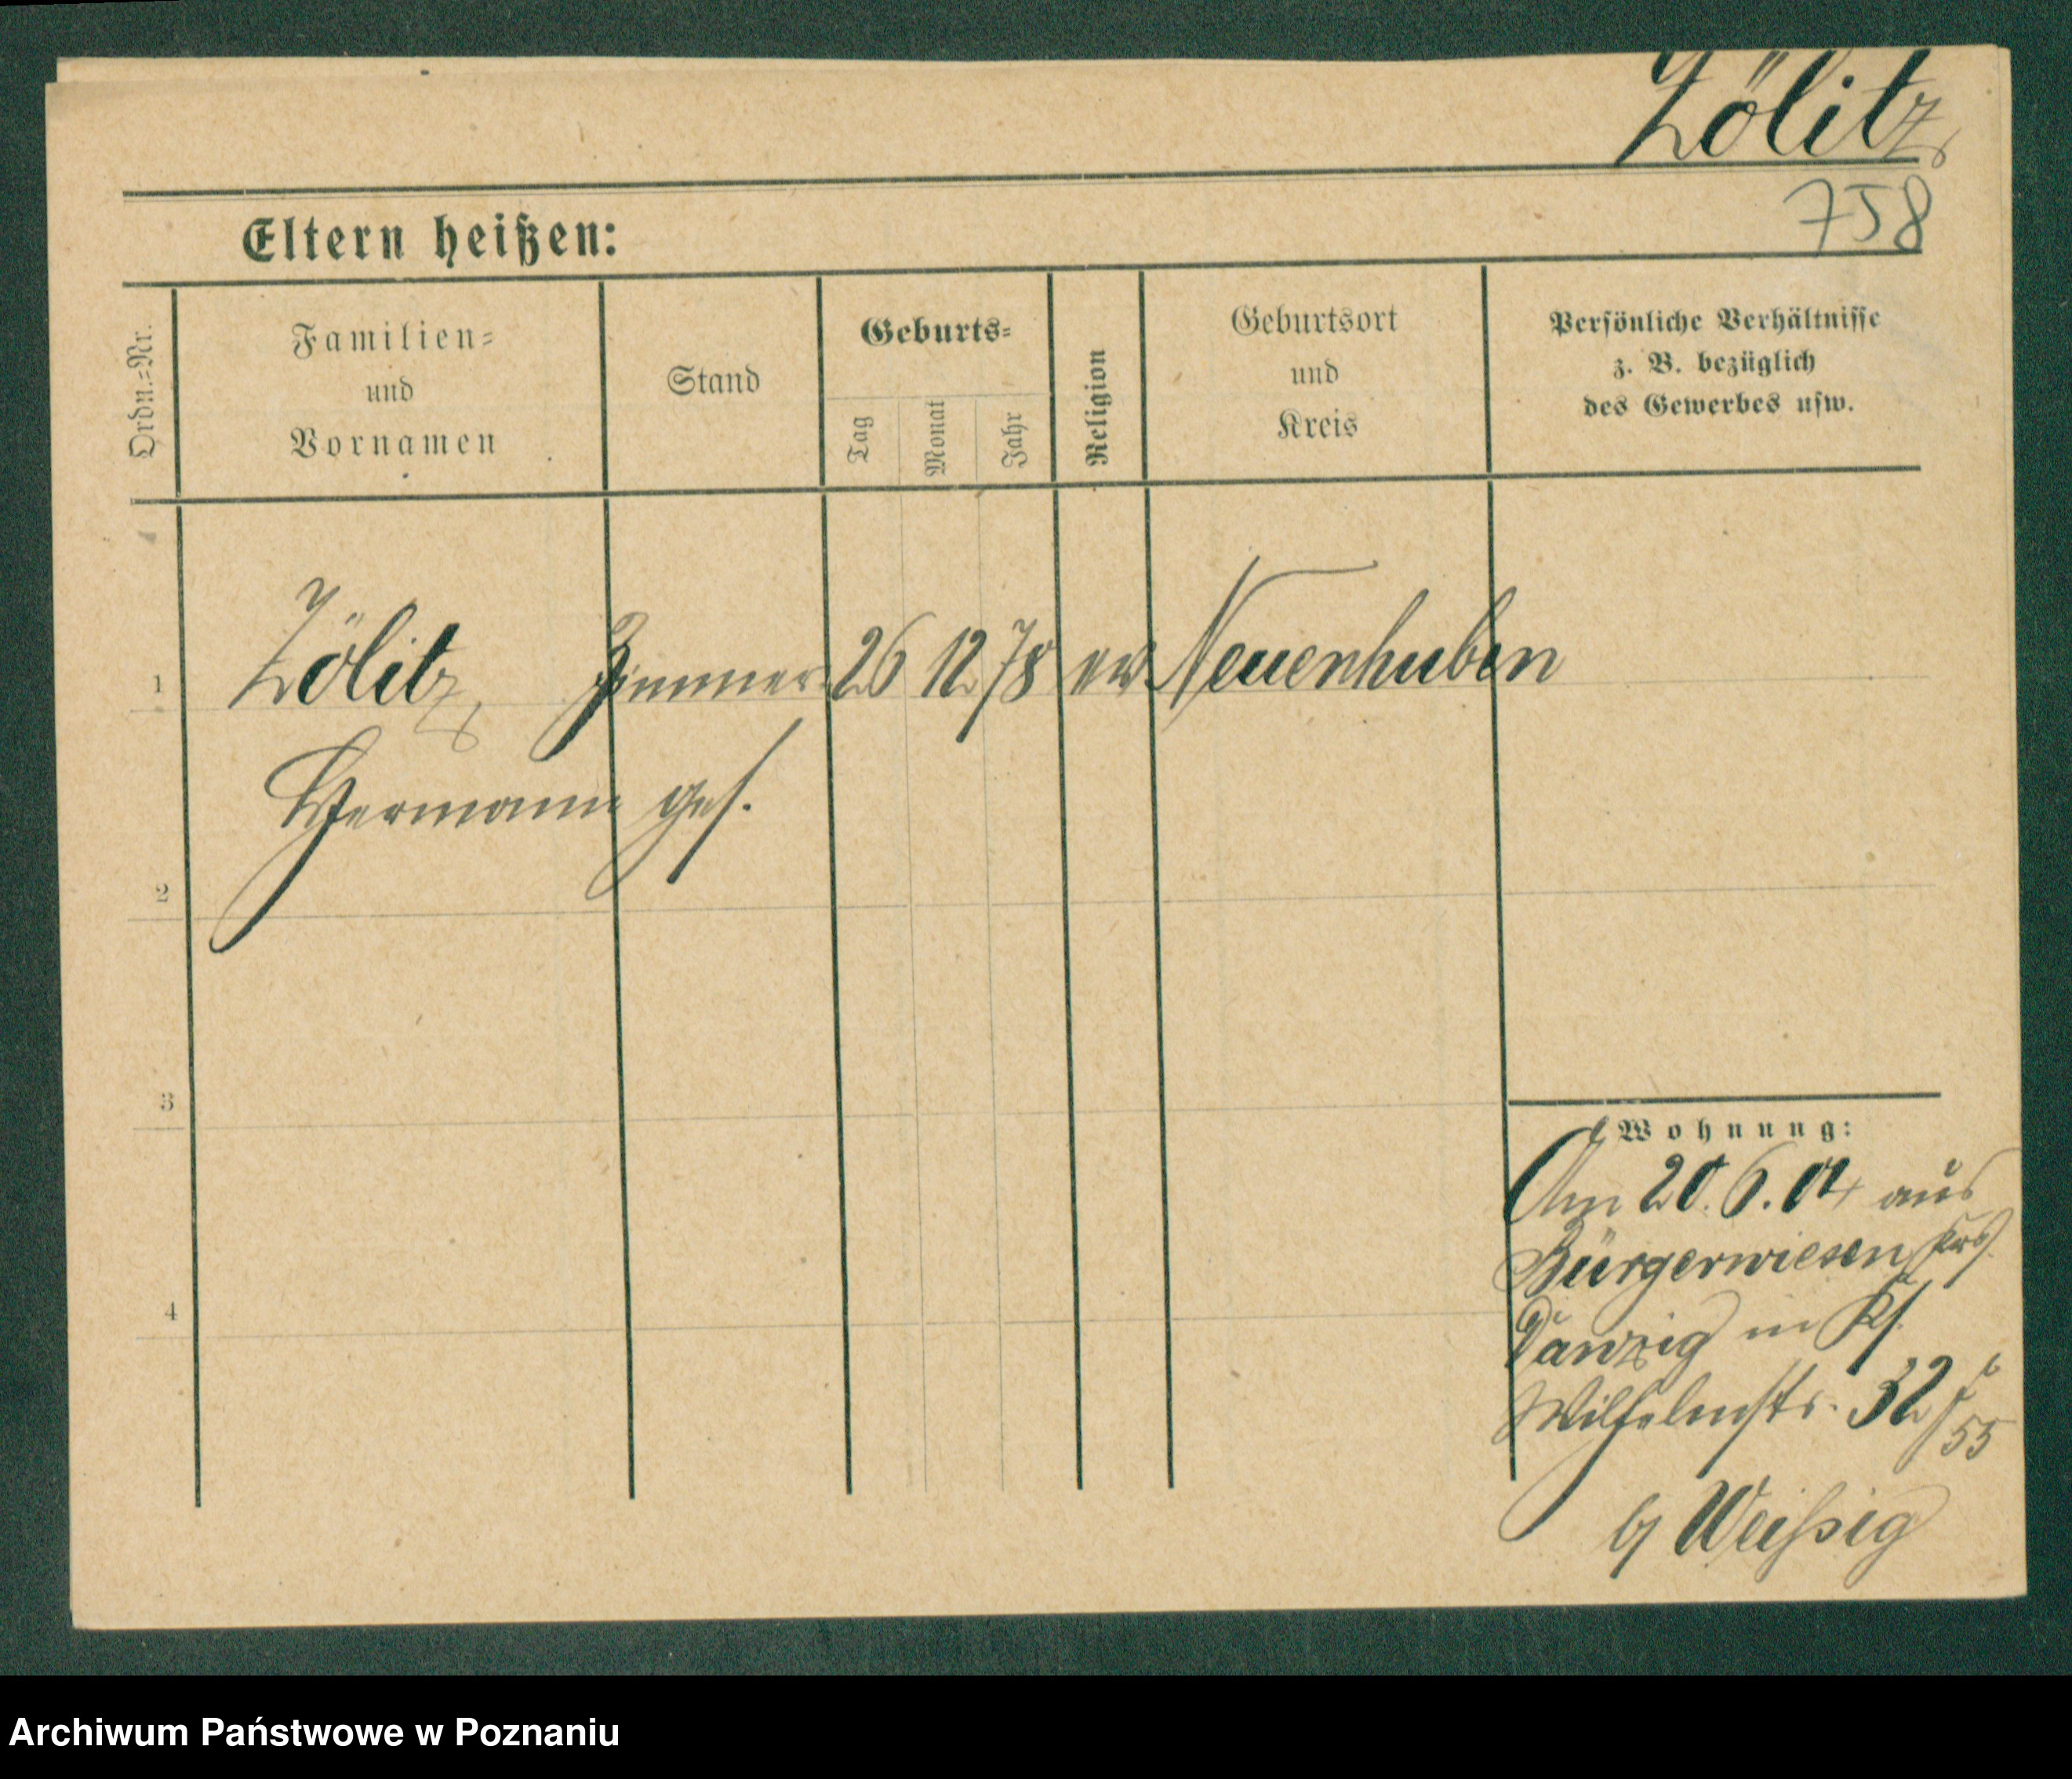 Zölitz
758
Eltern heißen:
Ordn.=Nr.
Familien=
und
Vornamen
Stand
Geburts=
Tag
Monat
Jahr
Religion
Geburtsort
und
Kreis
Persönliche Verhältnisse
z. B. bezüglich
des Gewerbes usw.
1 Zölitz Zimmer 26 12 78 ev Neuenhuben
Hermann ges.
2
3
4
Wohnung:
Am 20.6.04 aus
Bürgerwiesen Krs
Danzig in
Wilhelmstr. 32
55
b/ Weißig
Archiwum Państwowe w Poznaniu